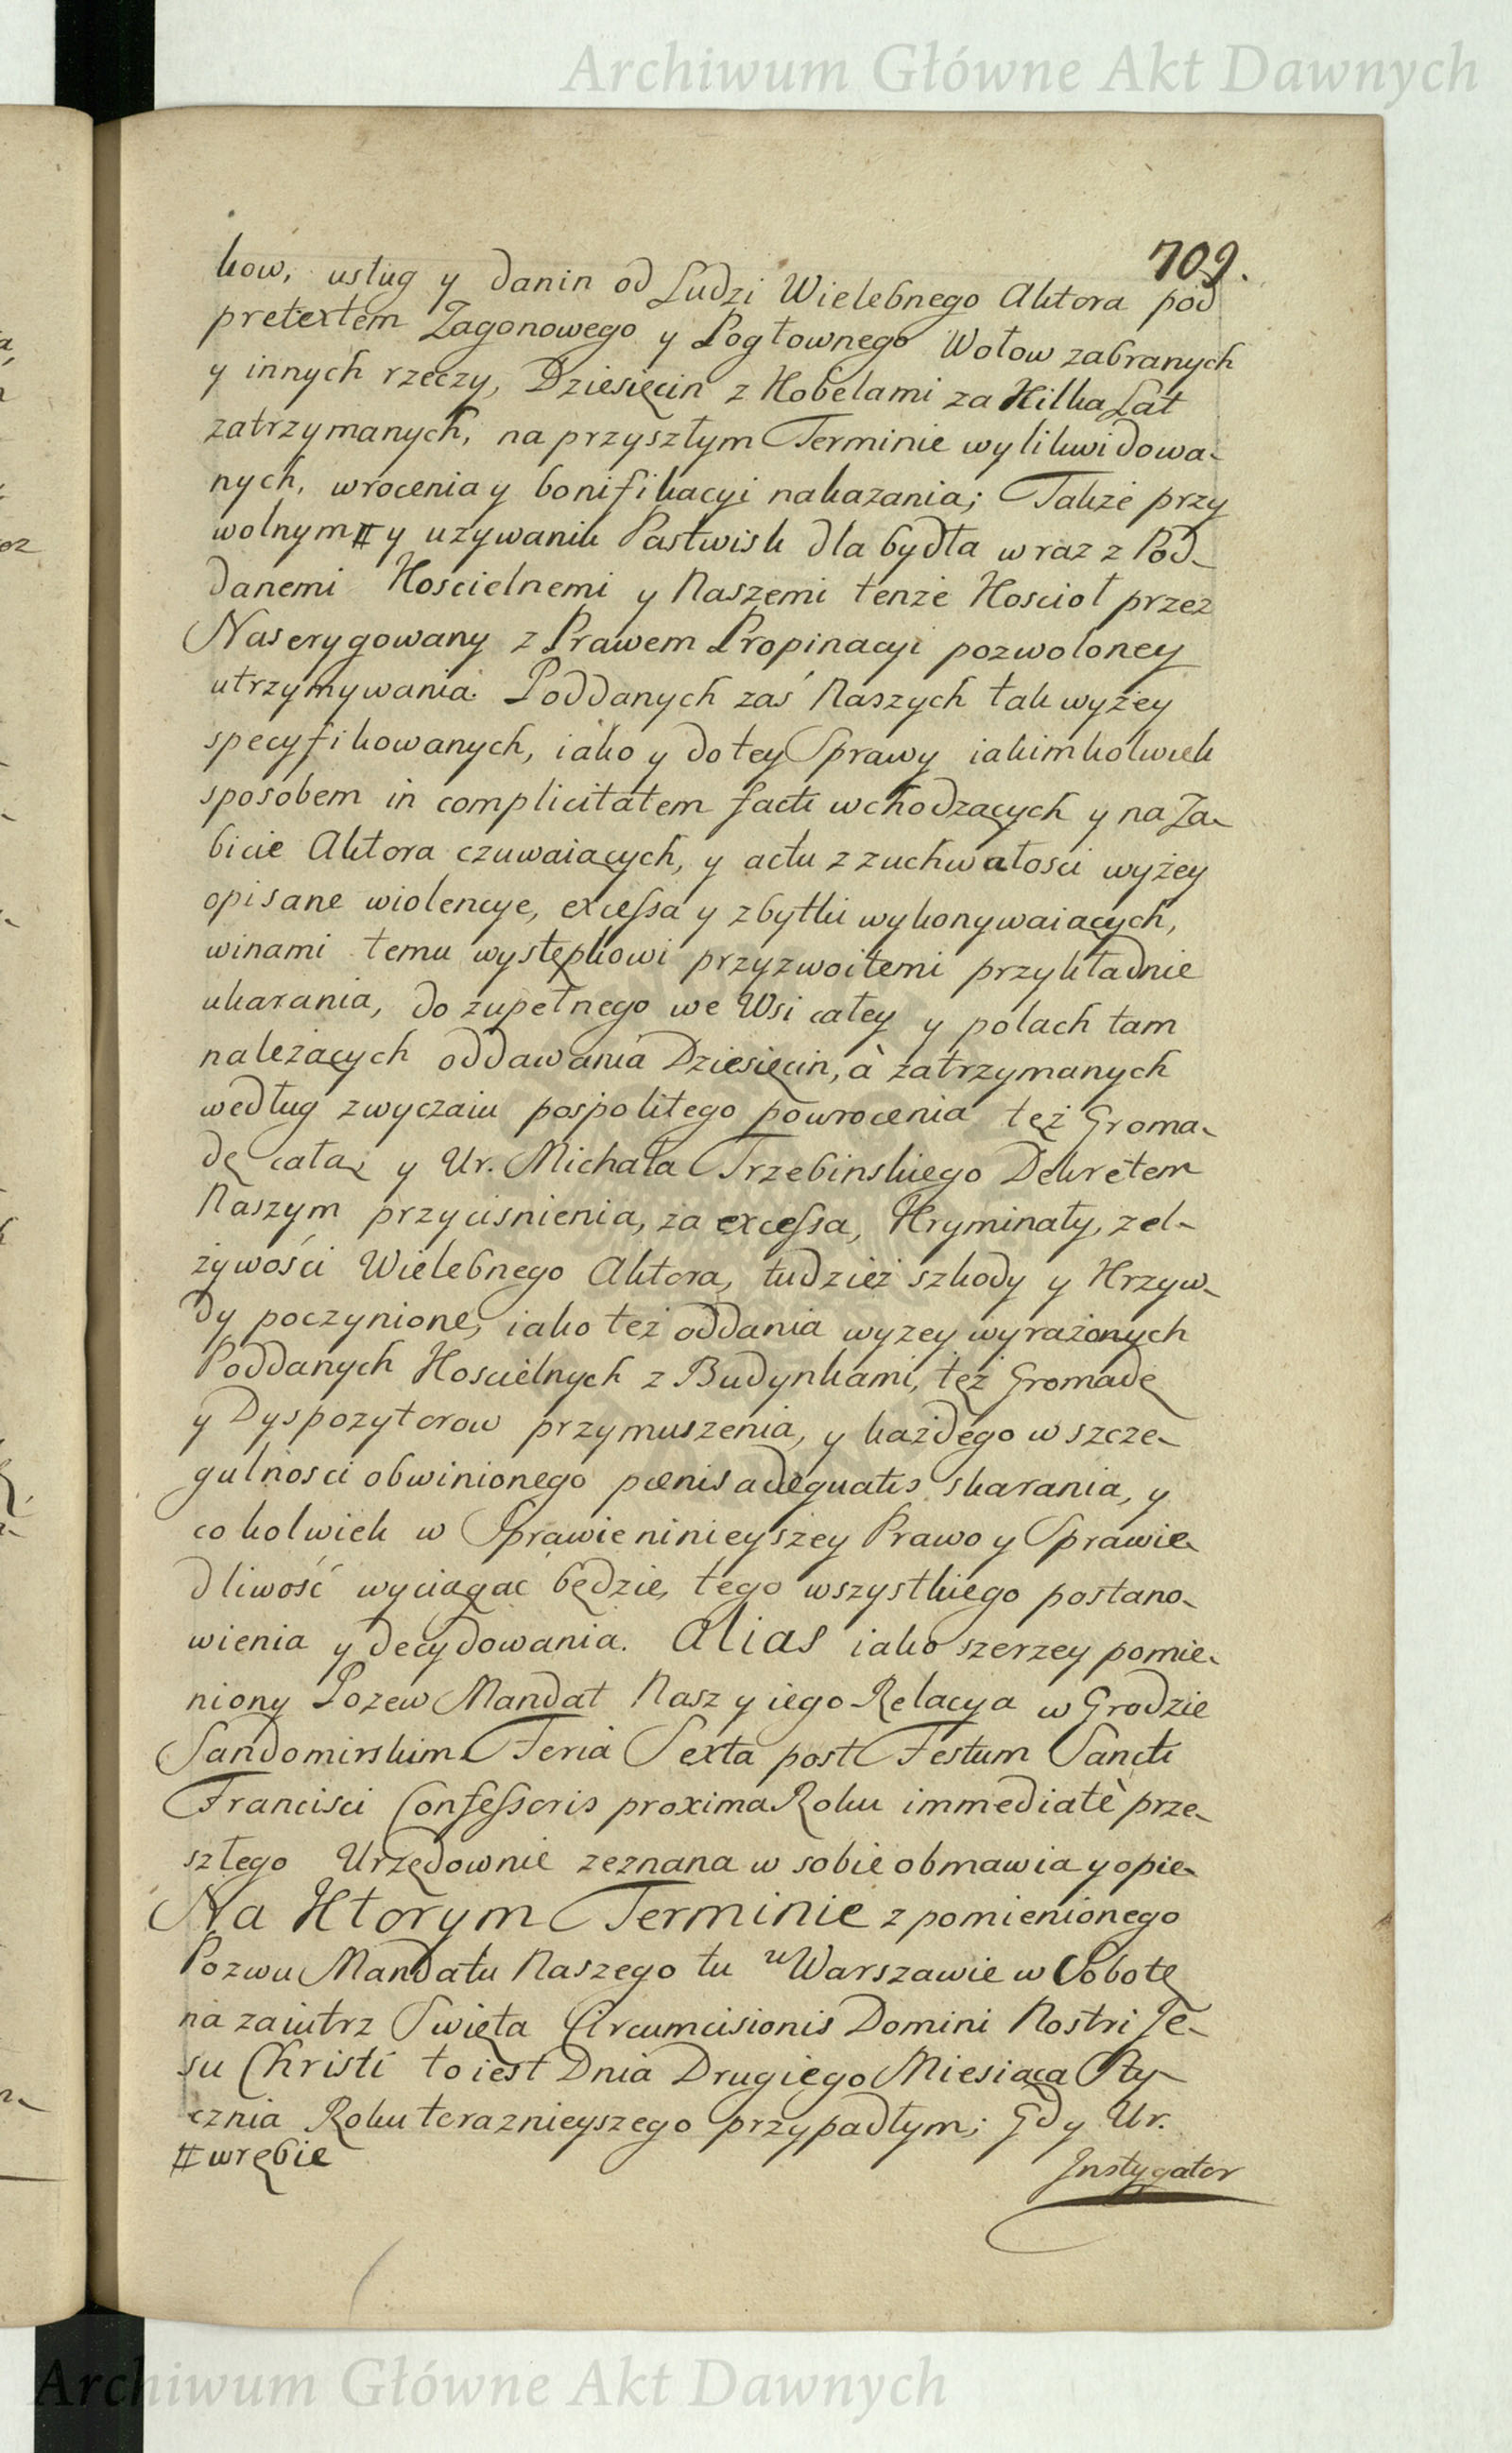 Archiwum Główne Akt Dawnych
709.
kow, usług y danin od Ludzi Wielebnego Aktora pod
pretextem Zagonowego y Pogłownego Wołow zabranych
y innych rzeczy, Dziesięcin z Kobelami za Kilka Lat
zatrzymanych, na przyszłym Terminie wylikwidowa-
nych, wrocenia y bonifikacyi nakazania; Takze przy
wolnym # y uzywaniu Pastwisk dla bydła wraz z Pod-
danemi Koscielnemi y Naszemi tenże Koscioł przez
Nas erygowany z Prawem Propinacyi pozwoloney
utrzymywania. Poddanych zaś Naszych tak wyżey
specyfikowanych, iako y do tey Sprawy iakimkolwiek
sposobem in complicitatem facti wchodzących y na Za-
bicie Aktora czuwaiących, y actu z zuchwałosci wyżey
opisane wiolencye, excessa y zbytki wykonywaiących,
winami temu występkowi przyzwoitemi przykładnie
ukarania, do zupełnego we Wsi całey y polach tam
należących oddawania Dziesięcin, à zatrzymanych
według zwyczaiu pospolitego powrocenia też Groma-
dę całą y Ur. Michała Trzebinskiego Dekretem
Naszym przycisnienia, za excessa, Kryminały, zel-
żywości Wielebnego Aktora, tudzież szkody y Krzyw-
dy poczynione, iako też oddania wyzey wyrażonych
Poddanych Koscielnych z Budynkami, też Gromadę
y Dyspozytorow przymuszenia, y każdego w szcze-
gulnosci obwinionego pœnis adequatis skarania, y
cokolwiek w Sprawie ninieyszey Prawo y Sprawie-
dliwość wyciągac będzie, tego wszystkiego postano-
wienia y decydowania. Alias iako szerzey pomie-
niony Pozew Mandat Nasz y iego Relacya w Grodzie
Sandomirskim Feria Sexta post Festum Sancti
Francisci Confessoris proxima Roku immediatè prze-
szłego Urzędownie zeznana w sobie obmawia y opie-
Na Ktorym Terminie z pomienionego
Pozwu Mandatu Naszego tu w Warszawie w Sobotę
na zaiutrz Swięta Circumcisionis Domini Nostri Je-
su Christi to iest Dnia Drugiego Miesiąca Sty-
cznia Roku teraznieyszego przypadłym; Gdy Ur.
# wrębie
Instygator
Archiwum Główne Akt Dawnych